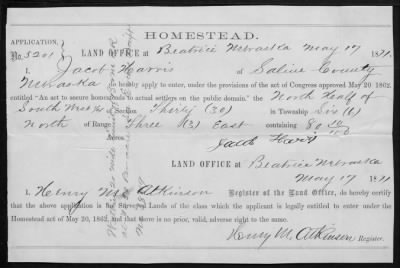 HOMESTEAD.
APPLICATION,
No. 5201
LAND OFFICE at Beatrice Nebraska May 17 1871.
I, Jacob Harris of Saline County
Nebraska do hereby apply to enter, under the provisions of the act of Congress approved May 20, 1862,
entitled "An act to secure homesteads to actual settlers on the public domain," the North Half of
South West 1/4 of Section Thirty (30) in Township Six (6)
North of Range Three (3) East containing 80 10/100
Acres.
Jacob Harris
LAND OFFICE at Beatrice Nebraska
May 17 1871
I, Henry M. Atkinson Register of the Land Office, do hereby certify
that the above application is for Surveyed Lands of the class which the applicant is legally entitled to enter under the
Homestead act of May 20, 1862, and that there is no prior, valid, adverse right to the same.
Henry M. Atkinson Register.